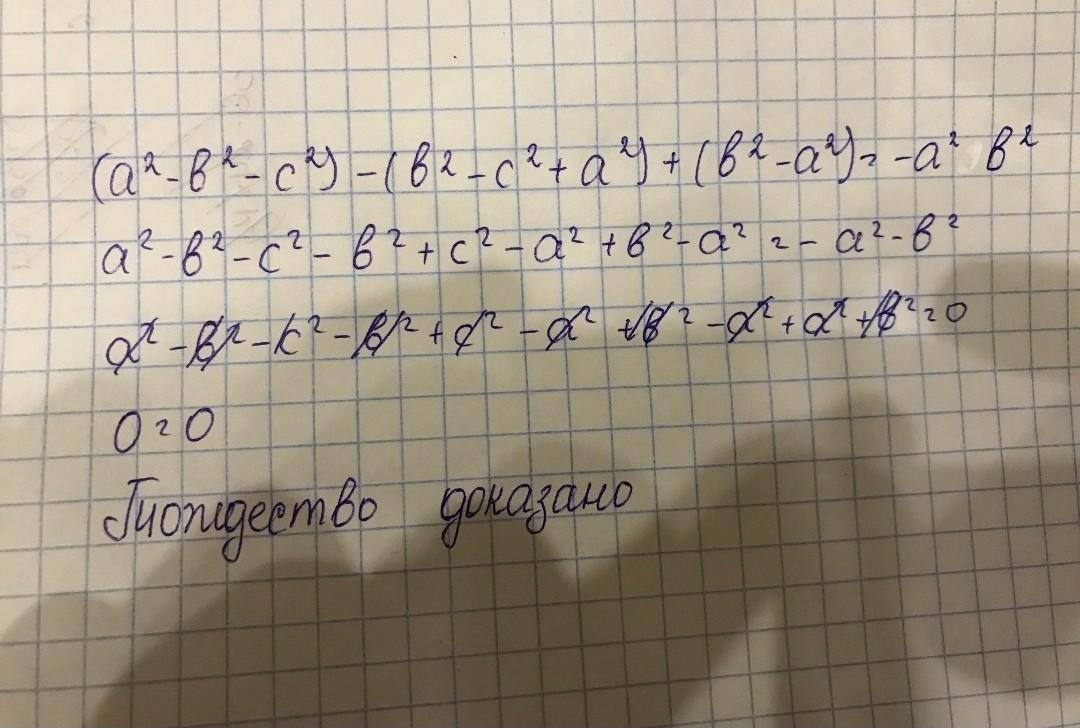 (a² - в² - c²) - (в² - c² + a²) + (в² - a²) = -a² в²
a² - в² - c² - в² + c² - a² + в² - a² = - a² - в²
a² - в² - c² - в² + c² - a² + в² - a² + a² + в² = 0
0 = 0
Тождество доказано